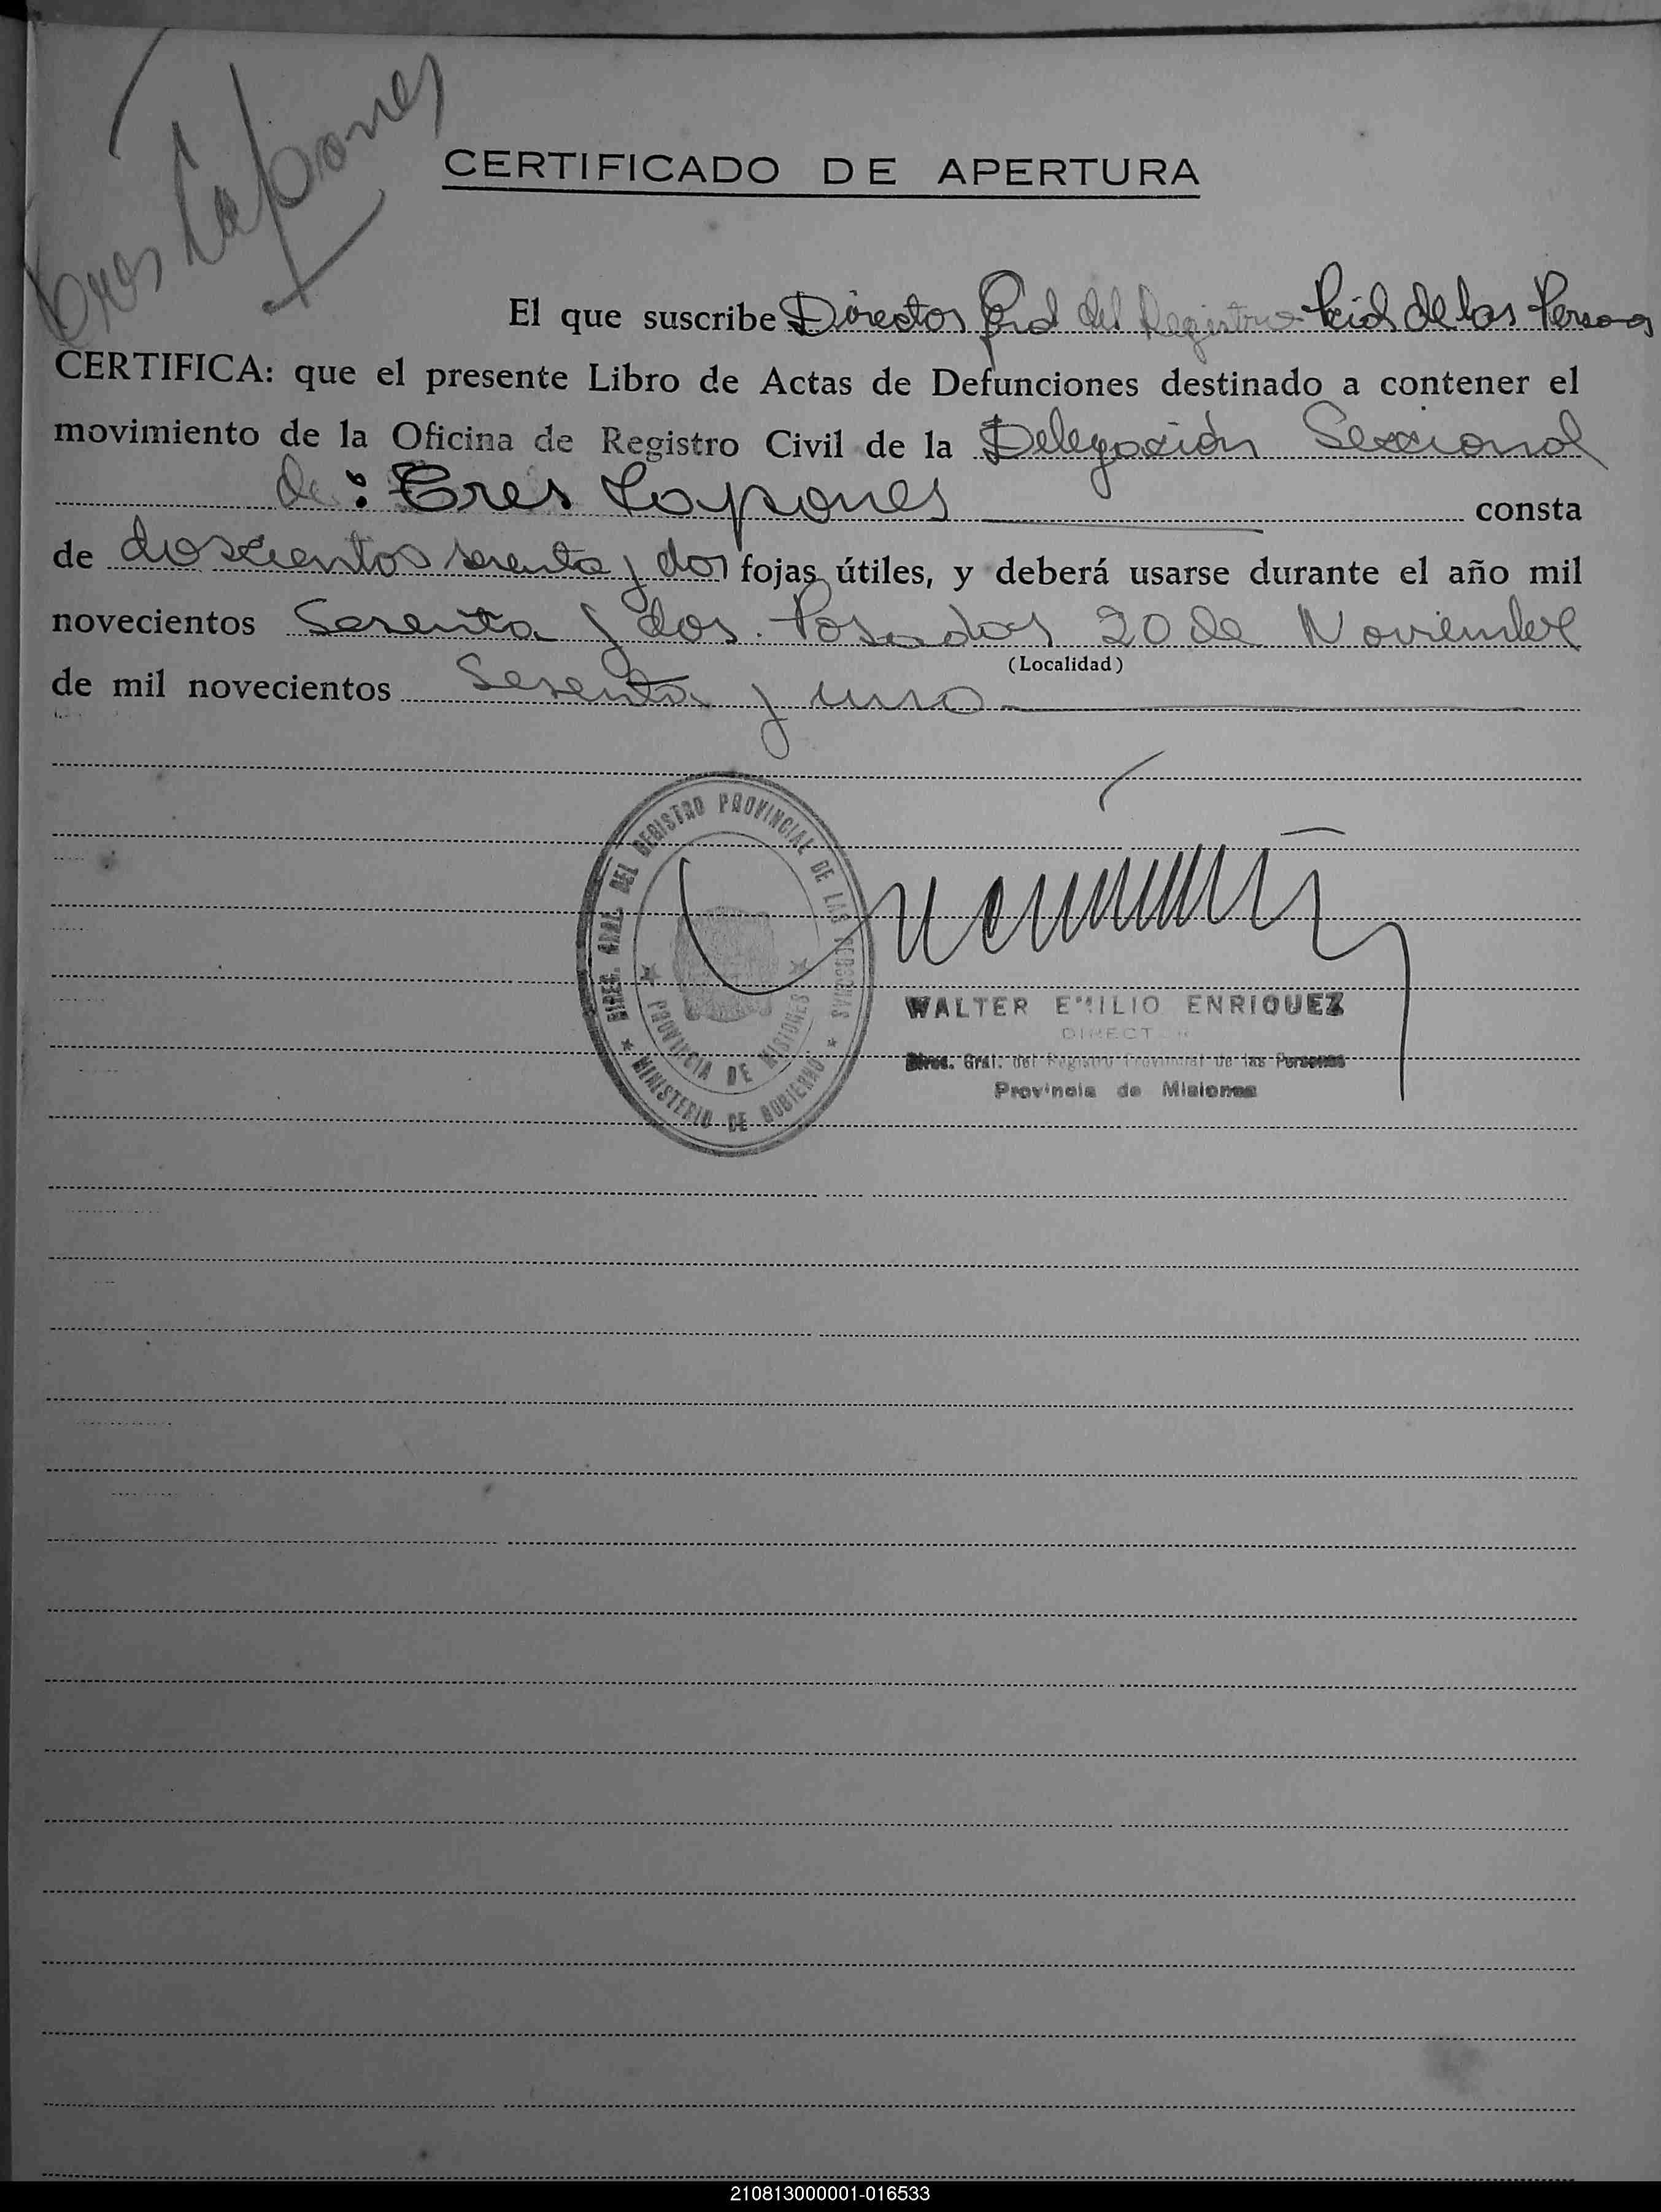 Tres Capones
CERTIFICADO DE APERTURA
El que suscribe Director Gral del Registro Pcial de las Personas
CERTIFICA: que el presente Libro de Actas de Defunciones destinado a contener el
movimiento de la Oficina de Registro Civil de la Delegación Seccional
de: Tres Capones consta
de doscientos sesenta y dos fojas útiles, y deberá usarse durante el año mil
novecientos Sesenta y dos. Posadas 20 de Noviembre
(Localidad)
de mil novecientos Sesenta y uno
DIREC. GRAL. DEL REGISTRO PROVINCIAL DE LAS PERSONAS
PROVINCIA DE MISIONES
* MINISTERIO DE GOBIERNO *
WALTER EMILIO ENRIQUEZ
DIRECTOR
Direc. Gral. del Registro Provincial de las Personas
Provincia de Misiones
210813000001-016533